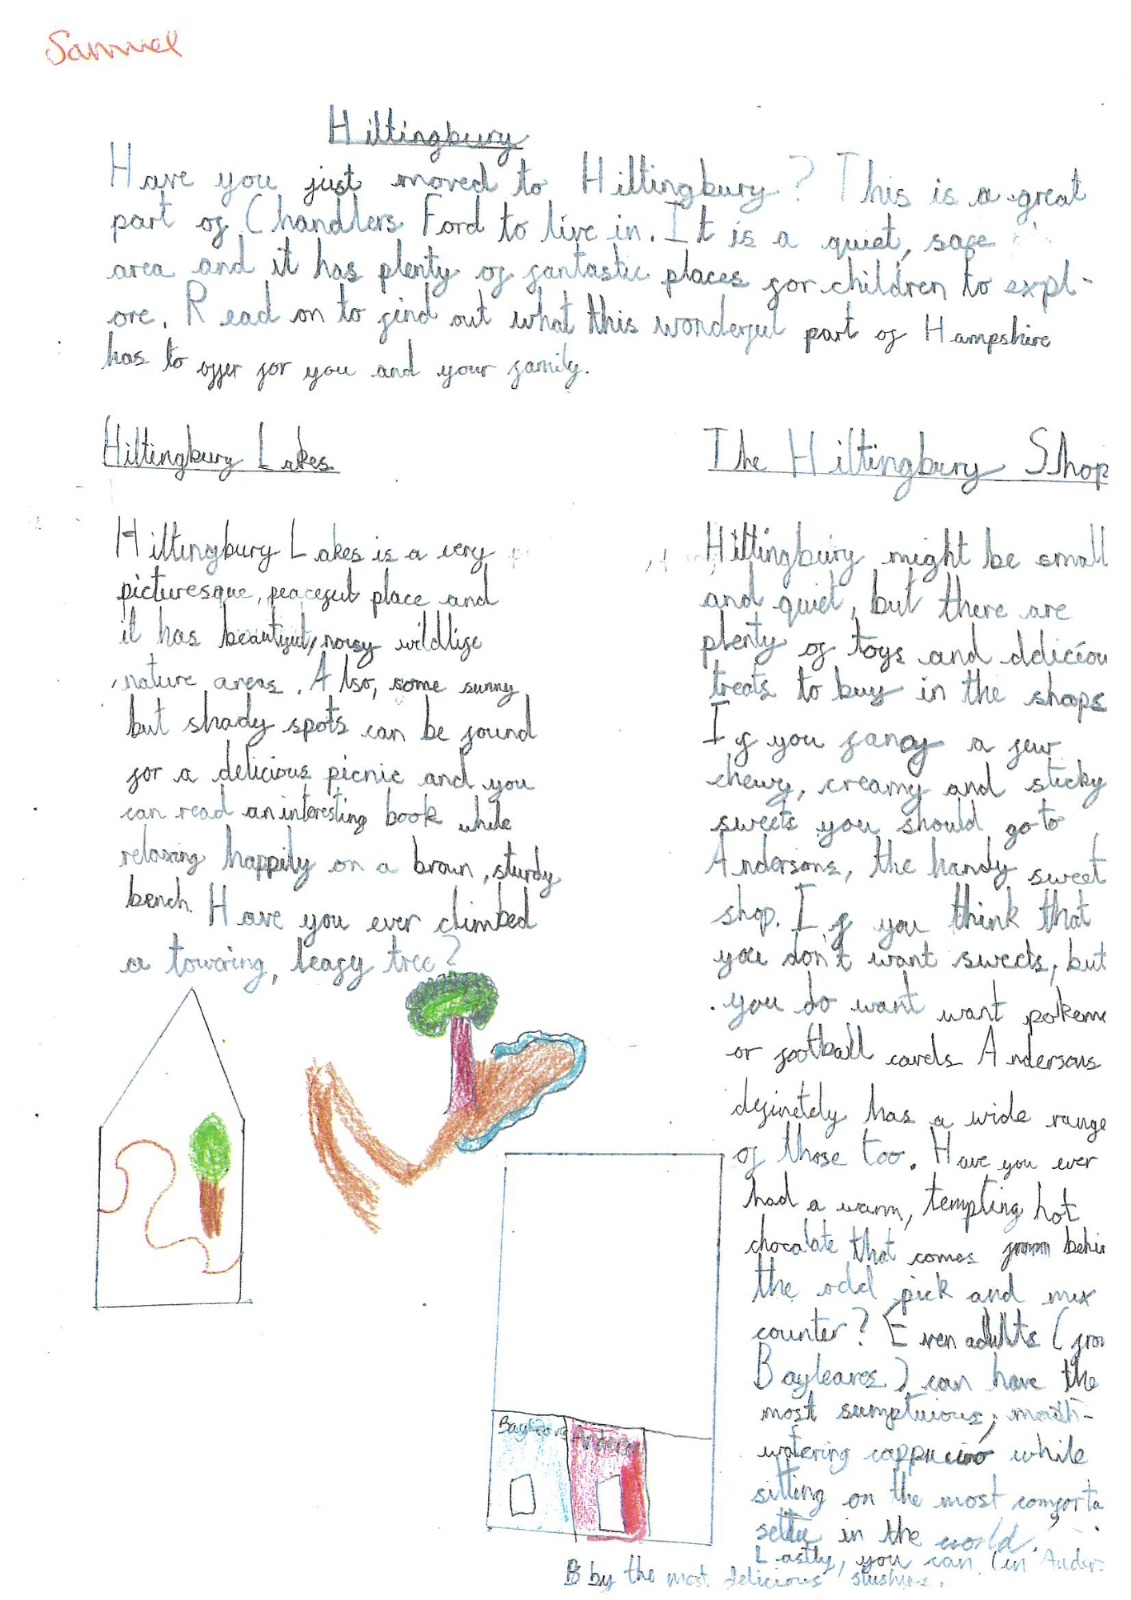 Samuel
Hiltingbury
Have you just moved to Hiltingbury? This is a great
part of Chandlers Ford to live in. It is a quiet, safe
area and it has plenty of fantastic places for children to expl-
ore. Read on to find out what this wonderful part of Hampshire
has to offer for you and your family.
Hiltingbury Lakes
Hiltingbury Lakes is a very
picturesque, peaceful place and
it has beautiful, noisy wildlife
nature areas. Also, some sunny
but shady spots can be found
for a delicious picnic and you
can read an interesting book while
relaxing happily on a brown, sturdy
bench. Have you ever climbed
a towering, leafy tree?
The Hiltingbury Shop
Hiltingbury might be small
and quiet, but there are
plenty of toys and deliciou
treats to buy in the shops
If you fancy a few
chewy, creamy and sticky
sweets you should go to
Andersons, the handy sweet
shop. If you think that
you don't want sweets, but
you do want want pokem
or football cards Andersons
definetely has a wide range
of those too. Have you ever
had a warm, tempting hot
chocolate that comes from behi
the odd pick and mix
counter? Even adults (fro
Bayleaves) can have the
most sumptuious, mouth-
watering cappucino while
sitting on the most comforta
settee in the world.
Lastly, you can (in Ander
Bby the most delicious slushies.
Bayleaves Anders